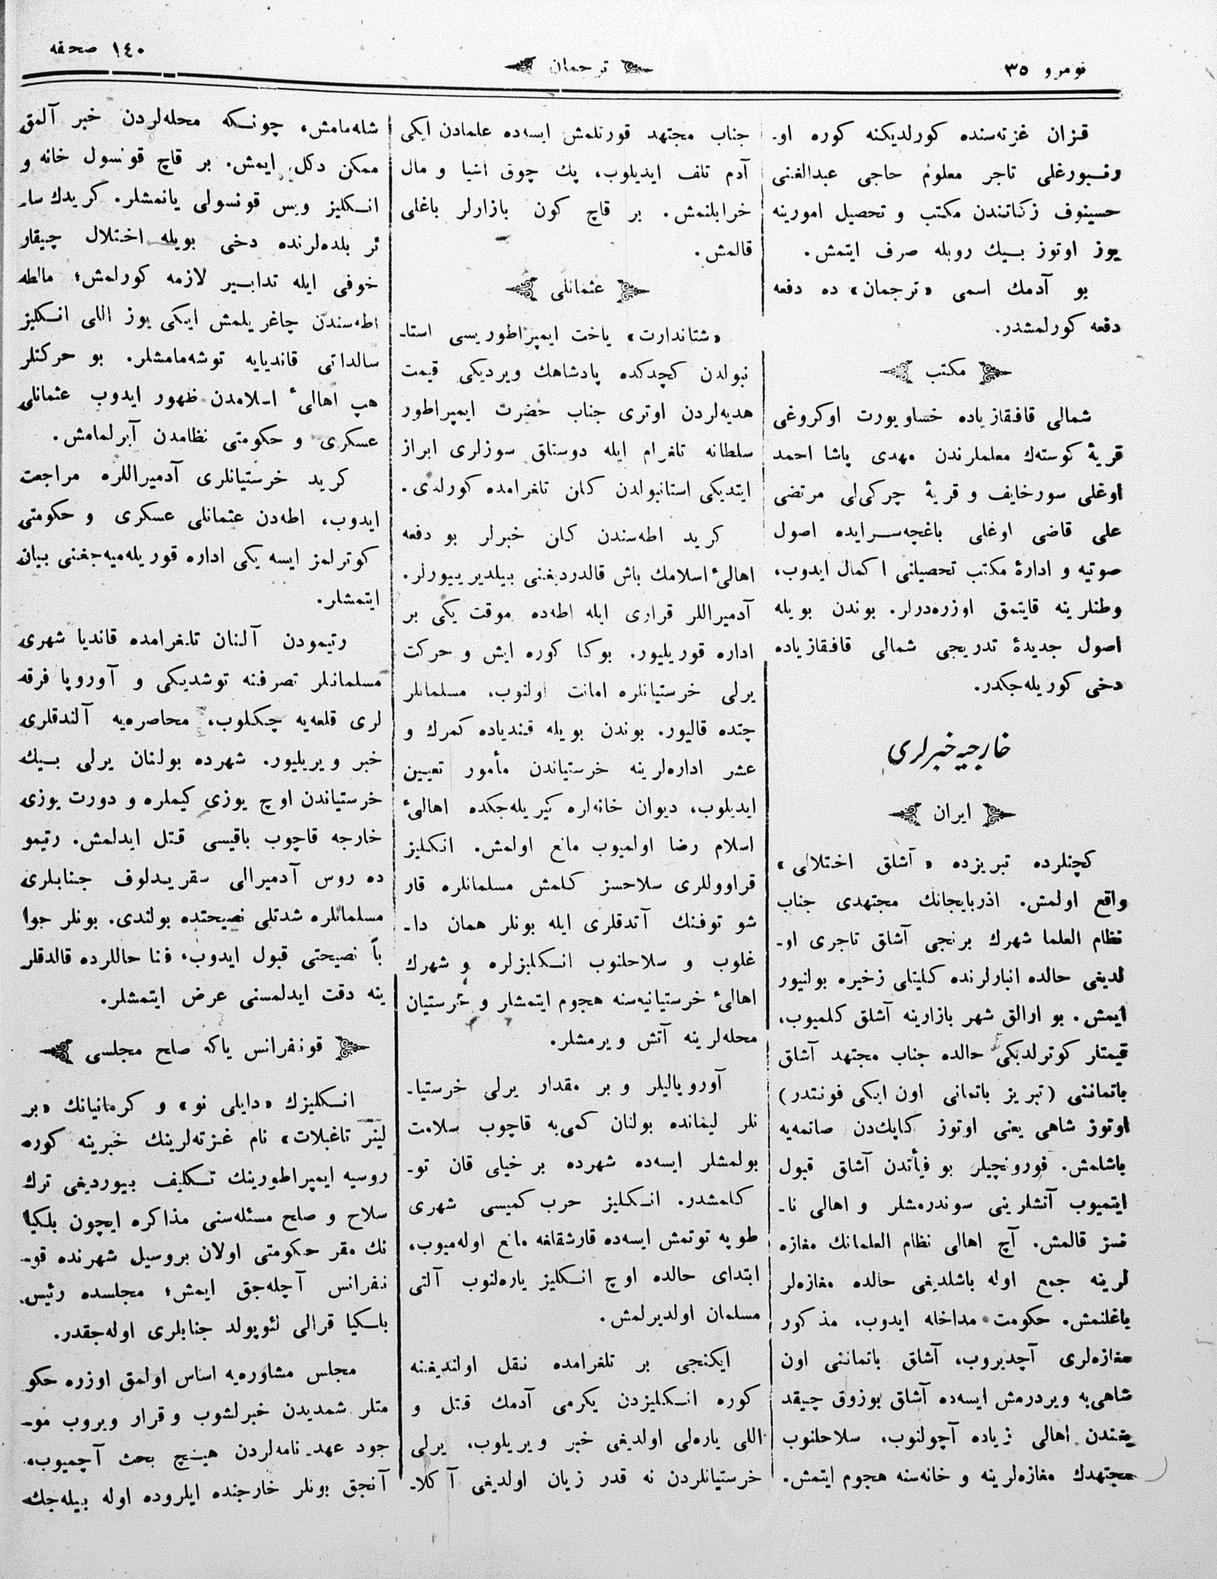 نومرو ٣٥
ترجمان
١٤٠ صحفه
قزان غزته‌سنده كورلديكنه كوره او-
رنبورغلى تاجر معلوم حاجى عبدالغنى
حسينوف زكاتندن مكتب و تحصيل امورينه
يوز اوتوز بيك روبله صرف ايتمش.
بو آدمك اسمى «ترجمان» ده دفعه
دفعه كورلمشدر.
مكتب
شمالى قافقازياده خساويورت اوكروغى
قريهٔ كوستەك معلملرندن مهدى پاشا احمد
اوغلى سورخايف و قريهٔ چركىلى مرتضى
على قاضى اوغلى باغچه‌سرايده اصول
صوتيه و ادارهٔ مكتب تحصيلنى اكمال ايدوب،
وطنلرينه قايتمق اوزره‌درلر. بوندن بويله
اصول جديدهٔ تدريجى شمالى قافقازياده
دخى كوريله‌جكدر.
خارجيه خبرلرى
ايران
كچنلرده تبريزده «آشلق اختلالى»
واقع اولمش. اذربايجانك مجتهدى جناب
نظام العلما شهرك برنجى آشلق تاجرى او-
لديغى حالده انبارلرنده كليتلى زخيره بولنيور
ايمش. بو ارالق شهر بازارينه آشلق كلميوب،
قيمتلر كوترلديكى حالده جناب مجتهد آشلق
باتماننى (تبريز باتمانى اون ايكى فونتدر)
اوتوز شاهى يعنى اوتوز كاپك‌دن صاتمه‌يه
باشلامش. فورونچيلر بو فيأتدن آشلق قبول
ايتميوب آتشلرينى سوندرمشلر و اهالى نا-
نسز قالمش. آچ اهالى نظام العلمانك مغازه
لرينه جمع اوله باشلديغى حالده مغازه‌لر
ياغلنمش. حكومت مداخله ايدوب، مذكور
مغازه‌لرى آچديروب، آشلق باتماننى اون
شاهى‌يه ويردرمش ايسه‌ده آشلق بوزوق چيقد
يغندن اهالى زياده آچولنوب، سلاحلنوب
مجتهدك مغازه‌لرينه و خانه‌سنه هجوم ايتمش.
جناب مجتهد قورتلمش ايسه‌ده علمادن ايكى
آدم تلف ايديلوب، پك چوق اشيا و مال
خرابلنمش. بر قاچ كون بازارلر باغلى
قالمش.
عثمانلى
«شتاندارت» ياخت ايمپراطوريسى استا-
نبولدن كچدكده پادشاهك ويرديكى قيمت
هديه‌لردن اوترى جناب حضرت ايمپراطور
سلطانه تلغرام ايله دوستلق سوزلرى ابراز
ايتديكى استانبولدن كلن تلغرامده كورلدى.
كريد اطه‌سندن كلن خبرلر بو دفعه
اهالىٔ اسلامك باش قالدرديغنى بيلديرييورلر.
آدميراللر قرارى ايله اطه‌ده موقت يكى بر
اداره قوريليور. بوكا كوره ايش و حركت
يرلى خرستيانلره امانت اولنوب، مسلمانلر
چتده قاليور. بوندن بويله قنديا‌ده كمرك و
عشر اداره‌لرينه خرستياندن مأمور تعيين
ايديلوب، ديوان خانه‌لره كيريله‌جكده اهالىٔ
اسلام رضا اولميوب مانع اولمش. انكليز
قراووللرى سلاحسز كلمش مسلمانلره قار
شو توفنك آتدقلرى ايله بونلر همان دا-
غلوب و سلاحلنوب انكليزلره و شهرك
اهالىٔ خرستيانيه‌سنه هجوم ايتمشلر و خرستيان
محله‌لرينه آتش ويرمشلر.
آوروپاليلر و بر مقدار يرلى خرستيا-
نلر ليمانده بولنان كمى‌يه قاچوب سلامت
بولمشلر ايسه‌ده شهرده بر خيلى قان تو-
كلمشدر. انكليز حرب كميسى شهرى
طوپه توتمش ايسه‌ده قارشقلغه مانع اوله‌ميوب،
ابتداى حالده اوچ انكليز ياره‌لنوب آلتى
مسلمان اولديرلمش.
ايكنجى بر تلغرامده نقل اولنديغنه
كوره انكليزدن يكرمى آدمك قتل و
اللى ياره‌لى اولديغى خبر ويريلوب، يرلى
خرستيانلردن نه قدر زيان اولديغى آكلا-
شله‌مامش، چونكه محله‌لردن خبر آلمق
ممكن دكل ايمش. بر قاچ قونسول خانه و
انكليز ويس قونسولى يانمشلر. كريدك سا-
ئر بلده‌لرنده دخى بويله اختلال چيقار
خوفى ايله تدابير لازمه كورلمش؛ مالطه
اطه‌سندن چاغريلمش ايكى يوز اللى انكليز
سالداتى قاندياىه توشه‌مامشلر. بو حركتلر
هپ اهالىٔ اسلامدن ظهور ايدوب عثمانلى
عسكرى و حكومتى نظامدن آيرلمامش.
كريد خرستيانلرى آدميراللره مراجعت
ايدوب، اطه‌دن عثمانلى عسكرى و حكومتى
كوترلمز ايسه يكى اداره قوريله‌ميه‌جغنى بيان
ايتمشلر.
رتيمودن آلنان تلغرامده قانديا شهرى
مسلمانلر تصرفنه توشديكى و آوروپا فرقه
لرى قلعه‌يه چكلوب، محاصره‌يه آلندقلرى
خبر ويريليور. شهرده بولنان يرلى بيك
خرستياندن اوچ يوزى كيملره و دورت يوزى
خارجه قاچوب باقيسى قتل ايدلمش. رتيمو
ده روس آدميرالى سقريدلوف جنابلرى
مسلمانلره شدتلى نصيحتده بولندى. بونلر جوا
باً نصيحتى قبول ايدوب، فنا حاللرده قالدقلر
ينه دقت ايدلمسنى عرض ايتمشلر.
قونفرانس ياكه صلح مجلسى
انكليزك «دايلى نو» و كرمانيانك «بر
لينر تاغبلات» نام غزته‌لرينك خبرينه كوره
روسيه ايمپراطورينك تكليف بيورديغى ترك
سلاح و صلح مسئله‌سنى مذاكره ايچون بلكيا
نك مقر حكومتى اولان بروسيل شهرنده قو-
نفرانس آچله‌جق ايمش؛ مجلسده رئيس
بلكيا قرالى لئوپولد جنابلرى اوله‌جقدر.
مجلس مشاوره‌يه اساس اولمق اوزره حكو
متلر شمديدن خبرلشوب و قرار ويروب مو-
جود عهد نامه‌لردن هيچ بحث آچميوب،
آنجق بونلر خارجنده ايلروده اوله بيله‌جك